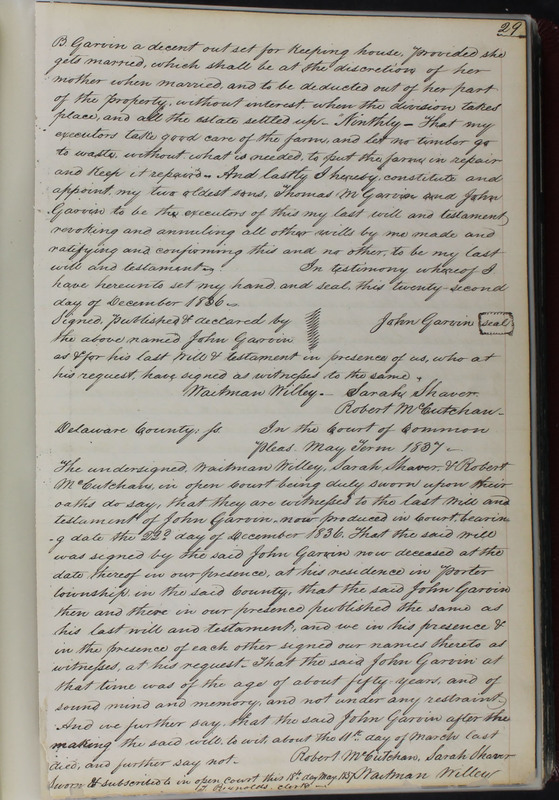 29
B. Garvin a decent outset for keeping house, provided she
gets married, which shall be at the discretion of her
mother when married, and to be deducted out of her part
of the property, without interest when the division takes
place, and all the estate settled up – Ninthly – That my
executors take good care of the farm, and let no timber go
to waste, without what is needed, to put the farm, in repair
and keep it repairs – And lastly I hereby, constitute and
appoint, my two oldest sons, Thomas M Garvin and John
Garvin to be the executors of this my last will and testament,
revoking and annuling all other wills by me made and
ratifying and confirming this and no other, to be my last
will and testament – In testimony whereof I
have hereunto set my hand and seal, this twenty-second
day of December 1836 –
Signed, published & declared by John Garvin seal
the above named John Garvin
as & for his last Will & testament in presence of us, who at
his request, have signed as witness to the same.
Waitman Willey – Sarah Shaver
Robert McCutchan –
Delaware County, ss In the Court of Common
Pleas. May Term 1837 –
The undersigned, Waitman Willey, Sarah Shaver, & Robert
McCutchan, in open Court being duly sworn upon their
oaths do say, that they are witnesses to the last will and
testament of John Garvin – now produced in Court, bearin
-g date the 22d day of December 1836. That the said will
was signed by the said John Garvin now deceased at the
date thereof in our presence, at his residence in Porter
township, in the said County, that the said John Garvin
then and there in our presence published the same as
his last will and testament, and we in his presence &
in the presence of each other signed our names thereto as
witnesses, at his request – That the said John Garvin at
that time was of the age of about fifty years, and of
sound mind and memory, and not under any restraint,
And we further say, that the said John Garvin after the
making the said will, to wit, about the 11th day of March last
died, and further say not – Robert McCutchan, Sarah Shaver
Sworn to & subscribed to in open Court this 18th day May, 1837. Waitman Willey
T. Reynolds, clerk –